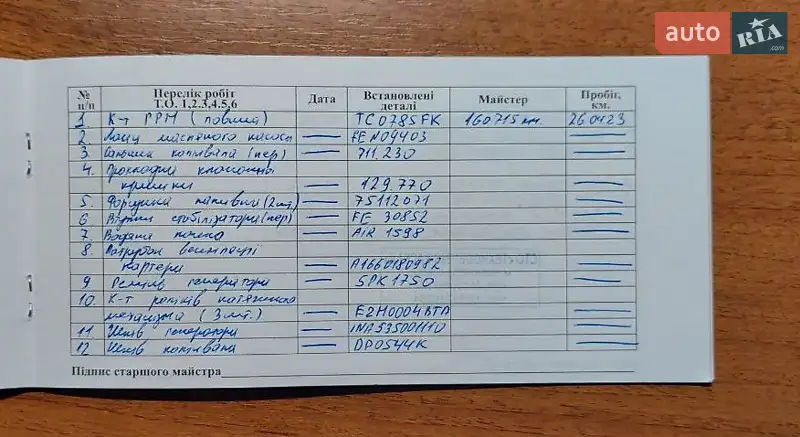 auto RIA .com
№ п/п Перелік робіт Т.О. 1,2,3,4,5,6 Дата Встановлені деталі Майстер Пробіг, км.
1. К-т ГРМ (повний) TC0785FK 160715 км. 260423
2 Ланц масляного насоса — FEN09403 —
3. Сальник колінвала (пер) — 711.230 —
4. Прокладка клапанної
кришки — 129.770 —
5. Форсунка паливна (2 шт.) — 75112071 —
6 Втулки стабілізатора (пер) — FE 30852 —
7 Водяна — AIR 1598 —
8. Патрубок вентиляції
картера — A1660180982 —
9 Ремінь генератора — 5PK1750 —
10. К-т роликів натяжного
механізма (3 шт.) — E2H0004BTA —
11 Шків генератора — INA535001110 —
12 Шків колінвала — DP0544K —
Підпис старшого майстра